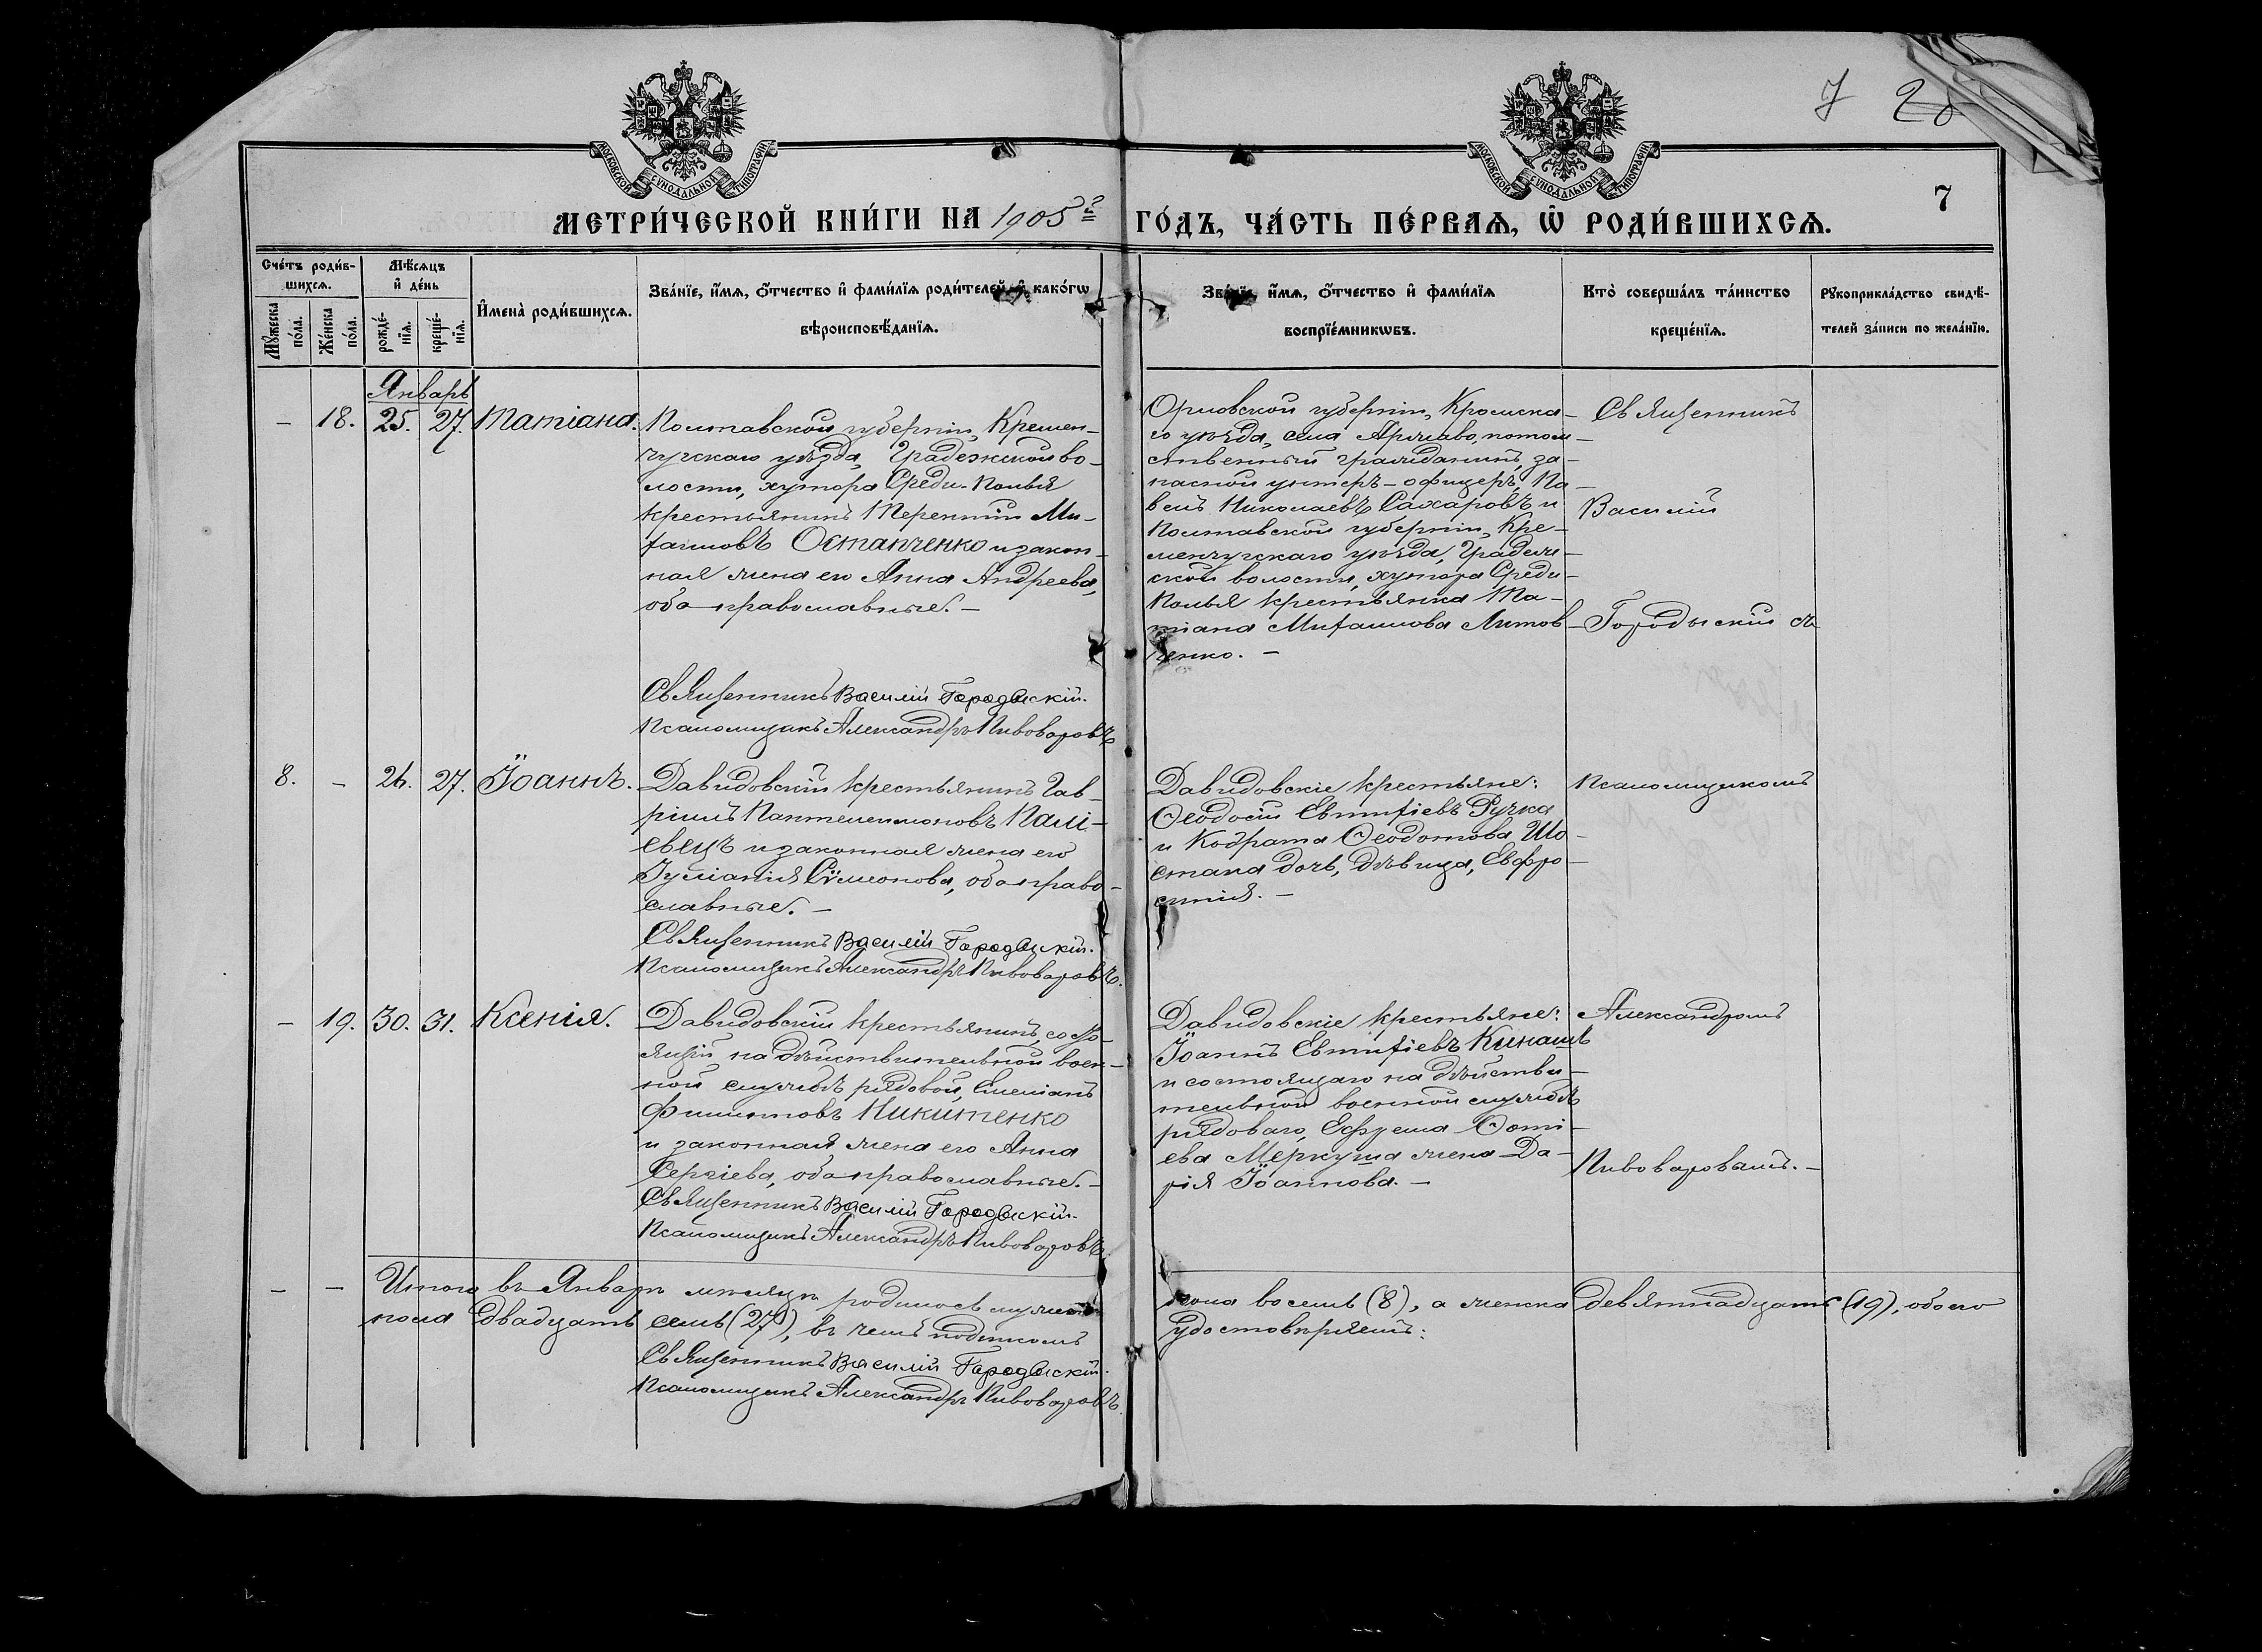 7 28
МОСКОВСКОЙ СѴНОДАЛЬНОЙ ТИПОГРАФІИ
МОСКОВСКОЙ СѴНОДАЛЬНОЙ ТИПОГРАФІИ
7
МЕТРИ́ЧЕСКОЙ КНИ́ГИ НА 1905 го́дъ, ча́сть пе́рваѧ, ѡ҆ роди́вшихсѧ.
Сче́тъ роди́в-
шихсѧ.
Мѣ́сѧцъ
и҆ де́нь
Мꙋ́жеска
по́ла.
Же́нска
по́ла.
рожде́-
нїѧ.
креще́-
нїѧ.
И҆мена̀ роди́вшихсѧ.
Зва́нїе, и҆́мѧ, ѻ҆́тчество и҆ фами́лїѧ роди́телей, и҆ како́гѡ
вѣроисповѣ́данїѧ.
Зва́нїе, и҆́мѧ, ѻ҆́тчество и҆ фами́лїѧ
воспрїе́мникѡвъ.
Кто̀ соверша́лъ та́инство
креще́нїѧ.
Рꙋкоприкла́дство свидѣ́-
телей за́писи по жела́нїю.
Январь
– 18. 25. 27. Татіана.
Полтавской губерніи, Кремен-
чугскаго уѣзда, Градежской во-
лости, хутора Среди-Полья
крестьянинъ Терентій Ми-
хаиловъ Остапченко и закон-
ная жена его Анна Андреева,
оба православные. –
Священникъ Василій Городыскій.
Псаломщикъ Александръ Пивоваровъ
Орловской губерніи, Кромска-
го уѣзда, села потом-
ственный гражданинъ, за-
пасной унтеръ-офицеръ, Па-
велъ Николаевъ Сахаровъ и
Полтавской губерніи, Кре-
менчугскаго уѣзда, Градеж-
ской волости, хутора Среди-
Полья крестьянка Та-
тіана Михаилова Литов-
ченко. –
Священникъ
Василій
Городыскій съ
8. – 26. 27. Іоаннъ.
Давидовскій крестьянинъ Гав-
ріилъ Пантелеимоновъ Палі-
евецъ и законная жена его
Іуліанія Сѵмеонова, оба право-
славные. –
Священникъ Василій Городыскій.
Псаломщикъ Александръ Пивоваровъ.
Давидовскіе крестьяне:
Ѳеодосій Евтихіевъ Ручка
и Кодрата Ѳеодотова Шо-
стака дочь, дѣвица, Евфро-
синія. –
Псаломщикомъ
– 19. 30. 31. Ксенія.
Давидовскій крестьянинъ, состо-
ящій на дѣйствительной воен-
ной службѣ рядовой, Емеліанъ
Филиповъ Никитенко
и законная жена его Анна
Сергіева, оба православные. –
Священникъ Василій Городыскій.
Псаломщикъ Александръ Пивоваровъ.
Давидовскіе крестьяне:
Іоаннъ Евтихіевъ Кинашъ
и состоящаго на дѣйстви-
тельной военной службѣ
рядоваго, Ефрема Фоті-
ева Меркуша жена Да-
рія Іоаннова. –
Александромъ
Пивоваровымъ. –
– – Итого въ Январѣ мѣсяцѣ родилось мужеска пола восемь (8), а женска девятнадцать (19), обоего
пола двадцать семь (27), въ чемъ подписомъ удостовѣряемъ:
Священникъ Василій Городыскій.
Псаломщикъ Александръ Пивоваровъ.